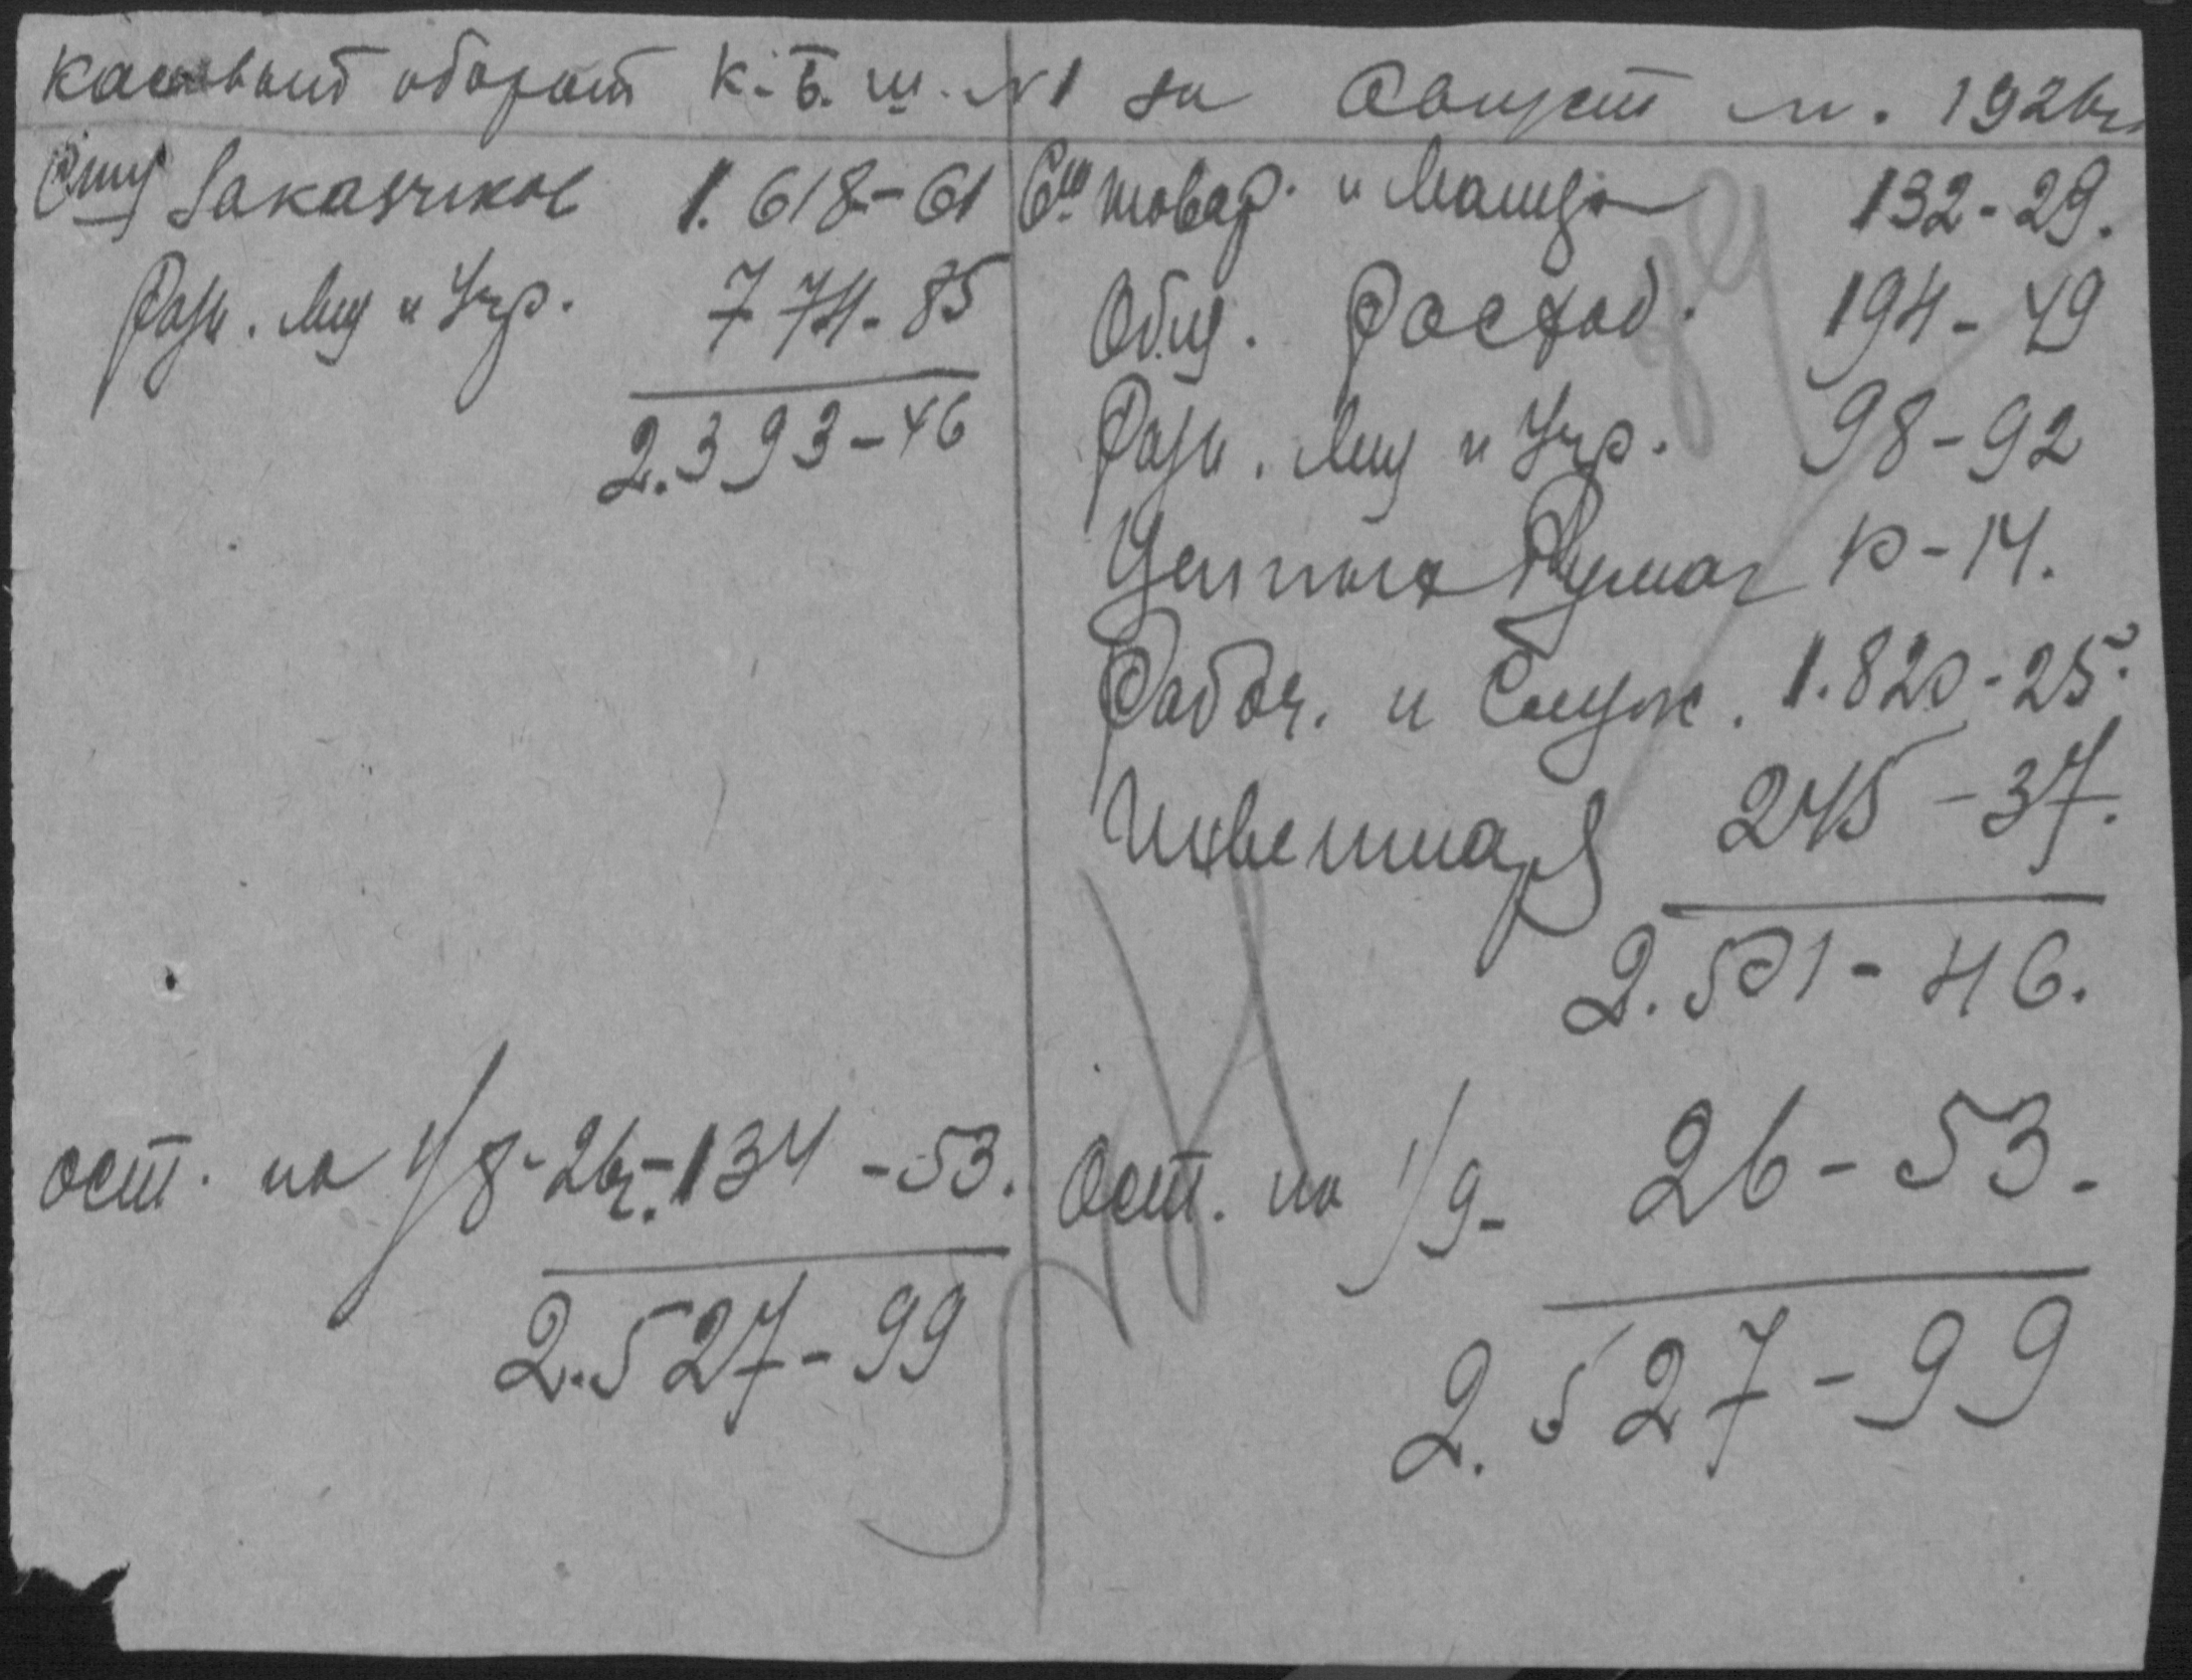 Кассовый оборот К.Б.Ш. №1 за Август м. 1926 г.
Счету Заказчиков 1.618-61
Разн. Лиц и Учр. 774-85
2.393-46
ост. на 1/8-26 г.-134-53.
2.527-99
Сч. товар. и Матер. 132-29.
Общ. Расход. 194-49
Разн. Лиц и Учр. 98-92
Ценных Бумаг 10-14.
Рабоч. и Служ. 1.820-25.
Инвентар 245-37.
2.501-46.
Ост. на 1/9- 26-53.
2.527-99